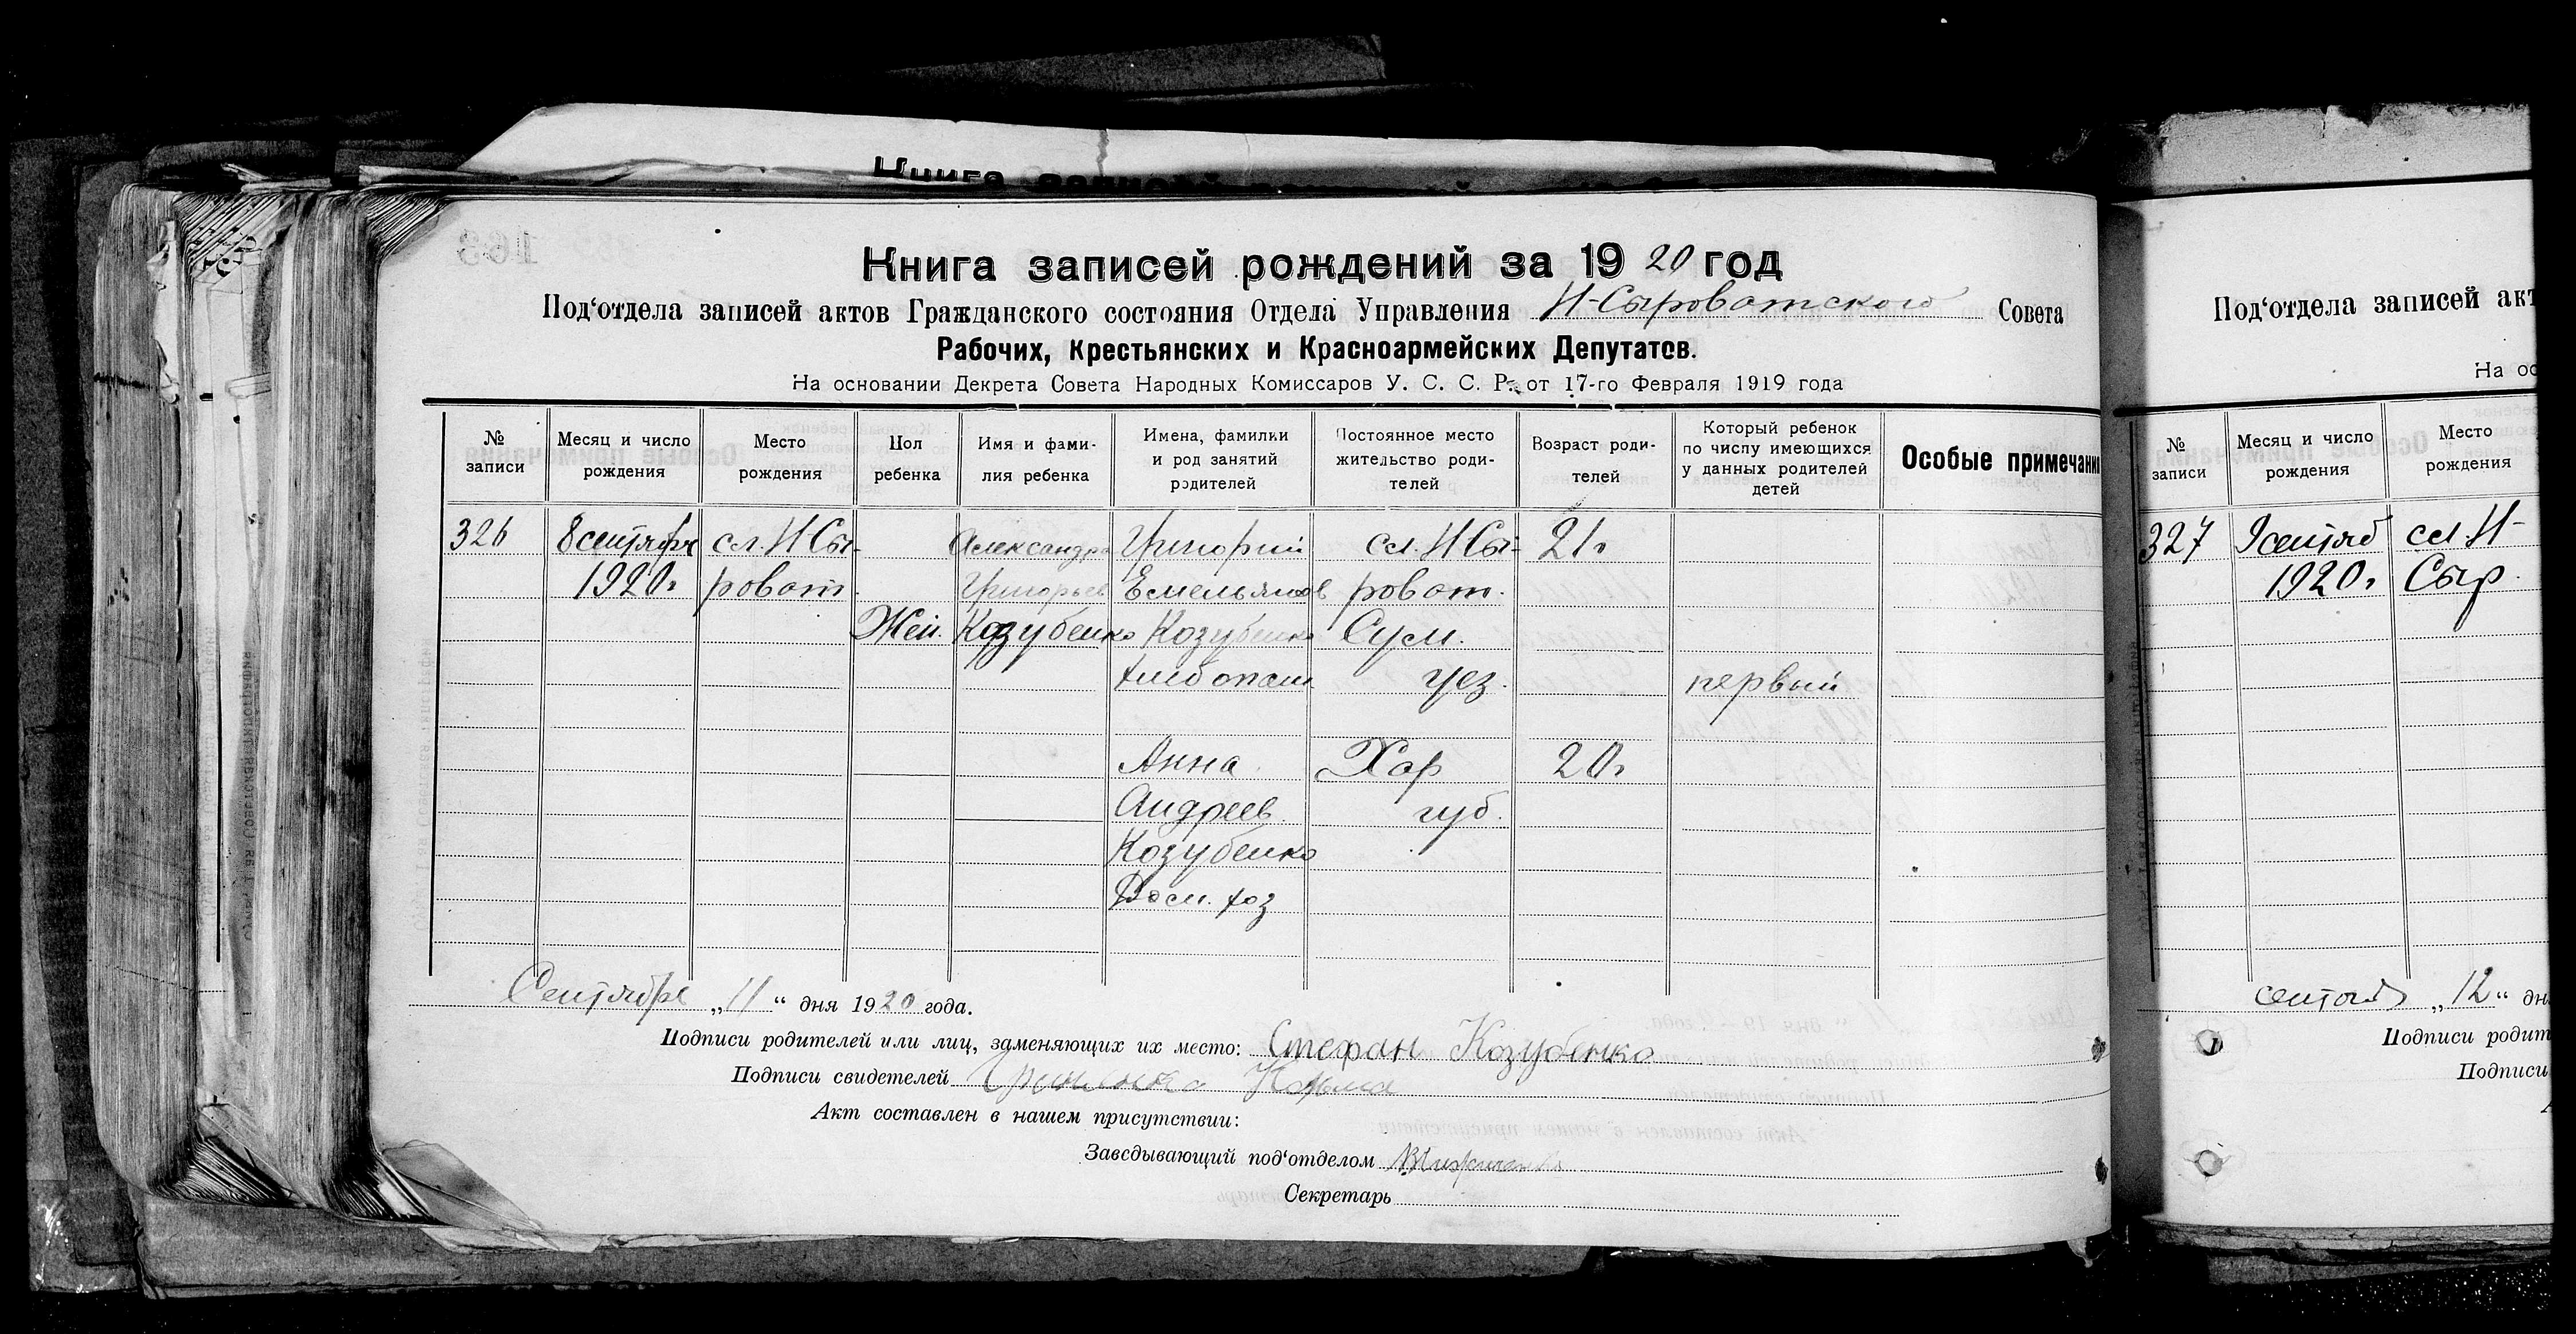 Книга записей рождений за 1920 год
Под‘отдела записей актов Гражданского состояния Отдела Управления Н-Сыроватского Совета
Рабочих, Крестьянских и Красноармейских Депутатов.
На основании Декрета Совета Народных Комиссаров У. С. С. Р. от 17-го Февраля 1919 года
№ записи
Месяц и число рождения
Место рождения
Пол ребенка
Имя и фами-
лия ребенка
Имена, фамилии
и род занятий
родителей
Постоянное место
жительство роди-
телей
Возраст роди-
телей
Который ребенок
по числу имеющихся
у данных родителей
детей
Особые примечани
326
8 сентября
1920г
сл. Н Сы-
роват.
Жен.
Александра
Григорьев
Козубенко
Григорий
Емельянов
Козубенко
хлебопаш.
Анна
Андреев.
Козубенко
Дом. хоз
сл. Н Сы-
роват.
Сум.
уез.
Хар
губ.
21г
20г
первый
Сентября „11“ дня 1920 года.
Подписи родителей или лиц, заменяющих их место: Стефан Козубенко
Подписи свидетелей
Акт составлен в нашем присутствии:
Заведывающий под‘отделом
Секретарь
Под‘отдела записей акт
На ос
№ записи
Месяц и число рождения
Место рождения
327
9 сентяб
1920г
сл. Н-
Сыр.
„12“ дн
Подписи родит
Подписи